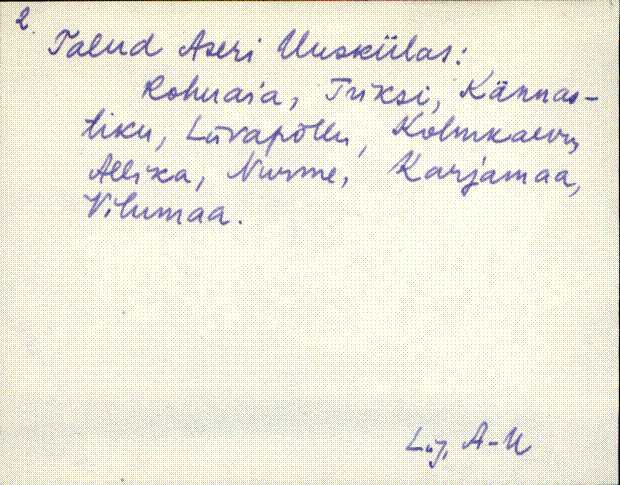 2.
Talud Aseri Uuskülas:
Rohuaia, Triksi, Kännas-
tiku, Liivapõllu, Kolmkaevu,
Allika, Nurme, Karjamaa,
Vilumaa.
Lüg, A-U